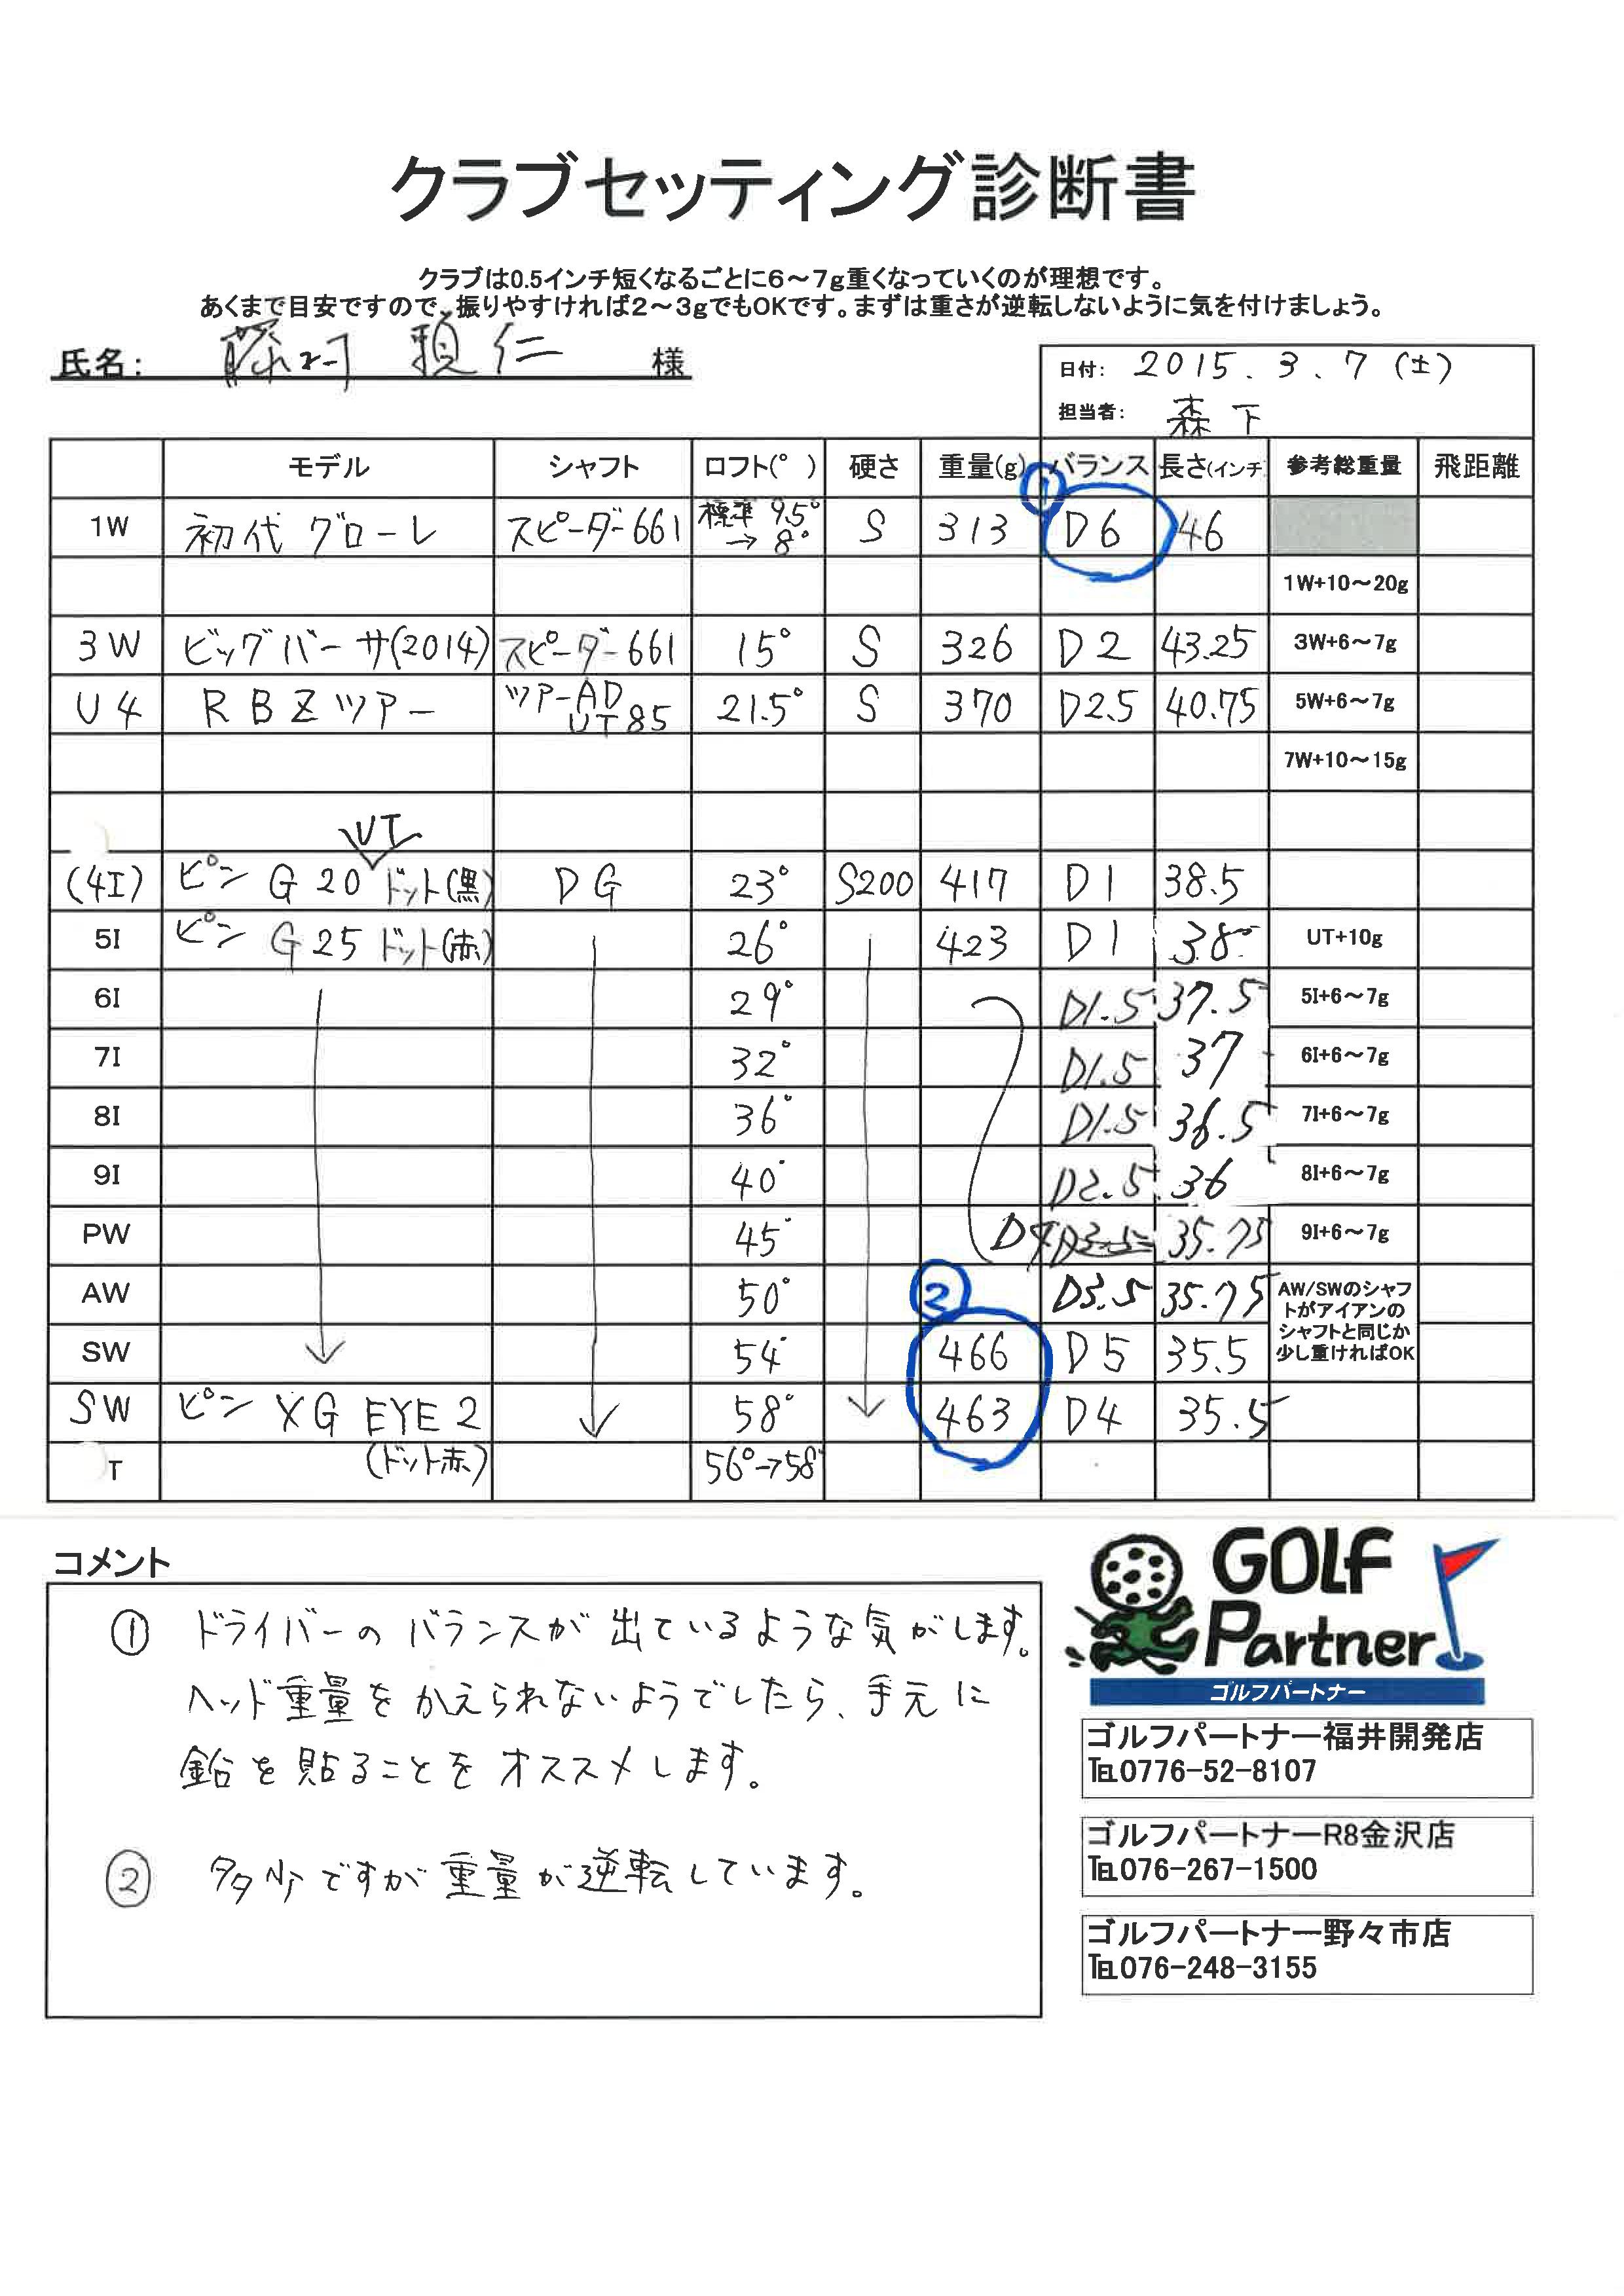 クラブセッティング診断書
クラブは0.5インチ短くなるごとに6～7g重くなっていくのが理想です。
あくまで目安ですので、振りやすければ2～3gでもOKです。まずは重さが逆転しないように気を付けましょう。
氏名： 仁 様
日付： 2015．3．7（土）
担当者： 森下
モデル シャフト ロフト(°) 硬さ 重量(g) バランス 長さ(インチ 参考総重量 飛距離
①
1W 初代グローレ スピーダー661 標準 9.5°→8° S 313 D6 46
1W+10～20g
3W ビッグバーサ(2014) スピーダー661 15° S 326 D2 43.25 3W+6～7g
U4 RBZツアー ツアーAD UT85 21.5° S 370 D2.5 40.75 5W+6～7g
7W+10～15g
UT
(4I) ピン G20 ドット(黒) DG 23° S200 417 D1 38.5
5I ピン G25 ドット(赤) 26° 423 D1 38 UT+10g
6I 29° D1.5 37.5 5I+6～7g
7I 32° D1.5 37 6I+6～7g
8I 36° D1.5 36.5 7I+6～7g
9I 40° D2.5 36 8I+6～7g
PW 45° D4 D3.5 35.75 9I+6～7g
②
AW 50° D3.5 35.75 AW/SWのシャフ
トがアイアンの
シャフトと同じか
少し重ければOK
SW 54° 466 D5 35.5
SW ピン XG EYE2 58° 463 D4 35.5
T (ドット赤) 56°→58°
コメント
① ドライバーのバランスが出ているような気がします。
ヘッド重量をかえられないようでしたら、手元に
鉛を貼ることをオススメします。
② 多少ですが重量が逆転しています。
GOLF
Partner
ゴルフパートナー
ゴルフパートナー福井開発店
℡0776-52-8107
ゴルフパートナーR8金沢店
℡076-267-1500
ゴルフパートナー野々市店
℡076-248-3155